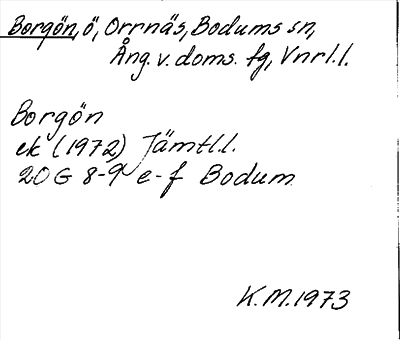 Borgön, ö, Orrnäs, Bodums sn,
Ång. v. doms. fg, Vnrl.l.
Borgön
ek (1972) Jämtl.l.
20G 8-9 e-f Bodum
K.M. 1973